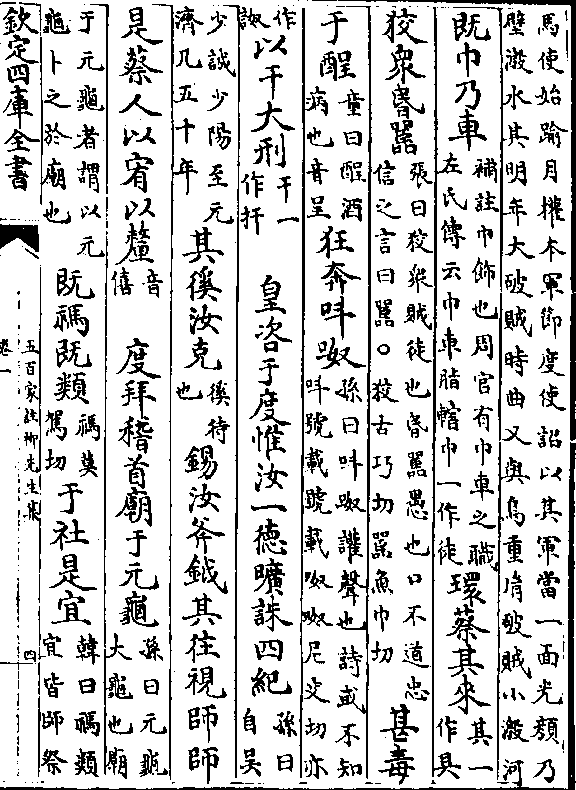 馬使始踰月權本軍節度使詔以其軍當一面光顏乃
壁溵水其明年大破賊時曲又與烏重胤破賊小溵河
既巾乃車補註巾飾也周官有巾車之職左氏傳云巾車脂轄巾一作徒環蔡其來其一作具
狡衆昬嚚張曰狡衆賊徒也昬嚚愚也口不道忠信之言曰嚚○狡古巧切嚚魚巾切甚毒
于酲童曰酲酒病也音呈狂奔叫呶孫曰叫呶讙聲也詩或不知叫號載號載呶呶尼交切亦
作詉以干大刑干一作扞 皇咨于度惟汝一德曠誅四紀孫曰自吳
少誠少陽至元濟凡五十年其徯汝克徯待也錫汝斧鉞其往視師師
是蔡人以宥以釐音僖 度拜稽首廟于元龜孫曰元龜大龜也廟
于元龜者謂以元龜卜之於廟也既禡既類禡莫駕切于社是宜韓曰禡類宜皆師祭
欽定四庫全書
五百家註柳先生集
卷一
四